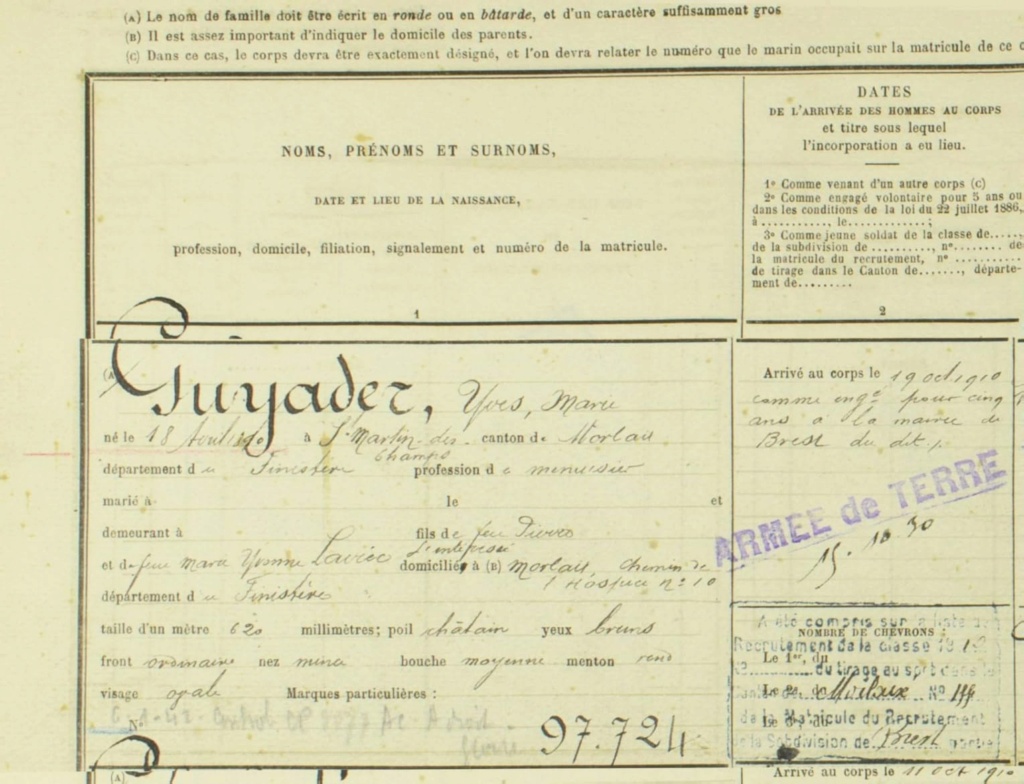 (A) Le nom de famille doit être écrit en ronde ou en bâtarde, et d'un caractère suffisamment gros
(B) Il est assez important d'indiquer le domicile des parents.
(C) Dans ce cas, le corps devra être exactement désigné, et l'on devra relater le numéro que le marin occupait sur la matricule de ce c
NOMS, PRÉNOMS ET SURNOMS,
DATE ET LIEU DE LA NAISSANCE,
profession, domicile, filiation, signalement et numéro de la matricule.
1
DATES
DE L'ARRIVÉE DES HOMMES AU CORPS
et titre sous lequel
l'incorporation a eu lieu.
1° Comme venant d'un autre corps (C)
2° Comme engagé volontaire pour 5 ans ou
dans les conditions de la loi du 22 juillet 1886,
à..........., le............;
3° Comme jeune soldat de la classe de.....,
de la subdivision de ........., n°........ de
la matricule du recrutement, n° ...........
de tirage dans le Canton de......., départe-
ment de.........
2
(A) Guyader, Yves, Marie
né le 18 Août à St Martin-des- canton de Morlaix
Champs
département du Finistère profession de menuisier
marié à le et
demeurant à fils de feu Pierre
et de feue Marie Yvonne domicilié à (B) Morlaix, Chemin de
l'Hospice n° 10
département du Finistère
taille d'un mètre 620 millimètres; poil châtain yeux bruns
front ordinaire nez bouche moyenne menton rond
visage ovale Marques particulières :
N° 97.724
Arrivé au corps le 19 oct 1910
comme engé pour cinq
ans à la mairie de
Brest du dit j.
ARMEE de TERRE
15.10.30
A été compris sur la liste de
NOMBRE DE CHEVRONS :
Recrutement de la classe 1912
Le 1er, du
N° du tirage au sort dans le
Canton de Morlaix N°
de la Matricule du Recrutement
de la Subdivision de Brest
(A)
Arrivé au corps le 11 oct 1910